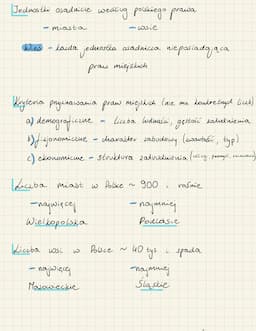 Jednostki osadnicze według polskiego prawa
- miasta - wsie
Wieś - każda jednostka osadnicza nieposiadająca
praw miejskich
Kryteria przyznawania praw miejskich (nie ma konkretnych liczb)
a) demograficzne - liczba ludności, gęstość zaludnienia
b) fizjonomiczne - charakter zabudowy (zwartość, typ)
c) ekonomiczne - struktura zatrudnienia (usługi, przemysł,
Liczba miast w Polsce ~ 900 i rośnie
- najwięcej - najmniej
Wielkopolska Podlasie
Liczba wsi w Polsce ~ 40 tyś i spada
- najwięcej - najmniej
Mazowieckie Śląskie